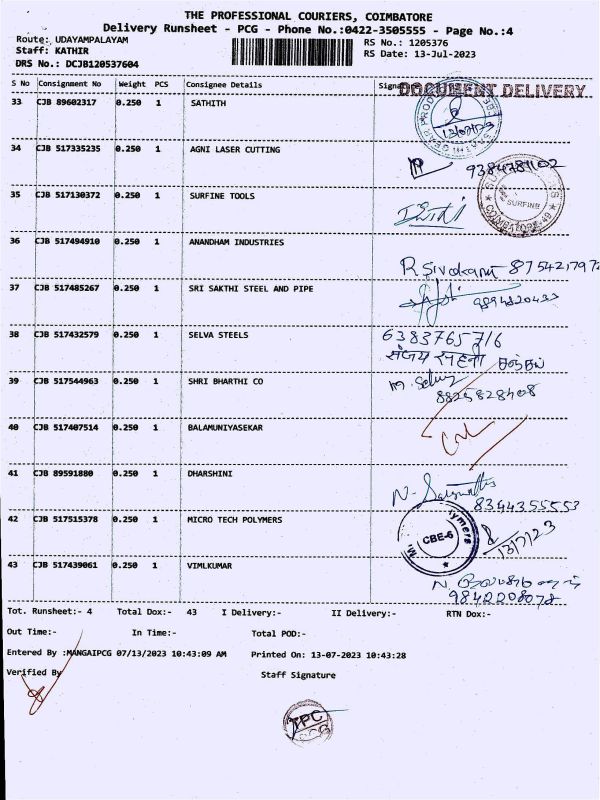 THE PROFESSIONAL COURIERS, COIMBATORE
Delivery Runsheet - PCG - Phone No.:0422-3505555 - Page No.:4
Route: UDAYAMPALAYAM RS No.: 1205376
Staff: KATHIR RS Date: 13-Jul-2023
DRS No.: DCJB120537604
S No Consignment No Weight PCS Consignee Details
DOCUMENT DELIVERY
33 CJB 89602317 0.250 1 SATHITH
13/07/23
34 CJB 517335235 0.250 1 AGNI LASER CUTTING
9384781102
35 CJB 517130372 0.250 1 SURFINE TOOLS
SURFINE
COIMBATORE-49
36 CJB 517494910 0.250 1 ANANDHAM INDUSTRIES
R Sivakami 8754217972
37 CJB 517485267 0.250 1 SRI SAKTHI STEEL AND PIPE
9894820433
38 CJB 517432579 0.250 1 SELVA STEELS
6383765716
39 CJB 517544963 0.250 1 SHRI BHARTHI CO
8825828408
40 CJB 517407514 0.250 1 BALAMUNIYASEKAR
41 CJB 89591880 0.250 1 DHARSHINI
8344355553
42 CJB 517515378 0.250 1 MICRO TECH POLYMERS
CBE-6
13/7/23
43 CJB 517439061 0.250 1 VIMLKUMAR
9842208078
Tot. Runsheet:- 4 Total Dox:- 43 I Delivery:- II Delivery:- RTN Dox:-
Out Time:- In Time:- Total POD:-
Entered By :MANGAIPCG 07/13/2023 10:43:09 AM Printed On: 13-07-2023 10:43:28
Verified By Staff Signature
TPC
PCG